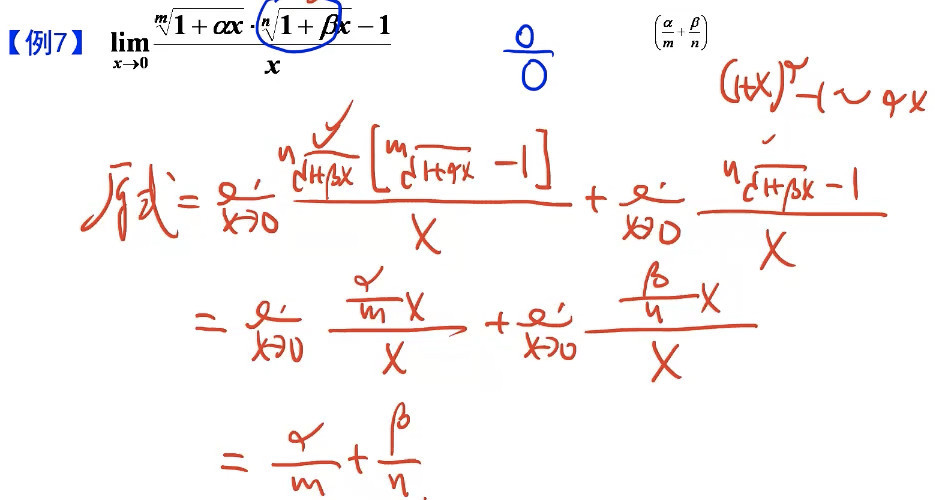 【例7】 lim_{x→0} (\sqrt[m]{1+αx} · \sqrt[n]{1+βx} − 1)/x    0/0    (α/m + β/n)
(1+x)^α −1 ~ αx
原式 = lim_{x→0} \sqrt[n]{1+βx} [\sqrt[m]{1+αx} −1]/x + lim_{x→0} (\sqrt[n]{1+βx} −1)/x
= lim_{x→0} (α/m x)/x + lim_{x→0} (β/n x)/x
= α/m + β/n.